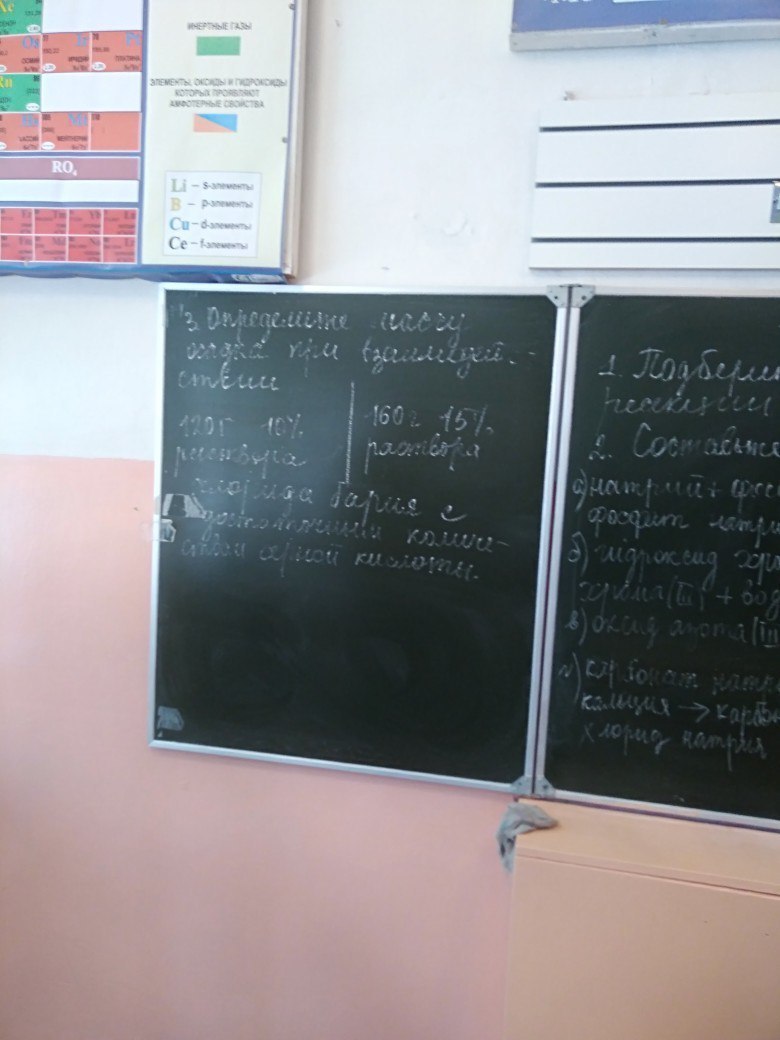 Xe
Os
Ir
Pt
ОСМИЙ
ИРИДИЙ
ПЛАТИНА
Rn
Hs
Mt
110
ХАССИЙ
МЕЙТНЕРИЙ
RO₄
Er Tm Yb Lu
Fm Md No Lr
ИНЕРТНЫЕ ГАЗЫ
ЭЛЕМЕНТЫ, ОКСИДЫ И ГИДРОКСИДЫ
КОТОРЫХ ПРОЯВЛЯЮТ
АМФОТЕРНЫЕ СВОЙСТВА
Li – s-элементы
B – p-элементы
Cu – d-элементы
Ce – f-элементы
3. Определите массу
осадка при взаимодей-
ствии
120г 10%
раствора
160г 15%
раствора
хлорида бария с
достаточным количе-
ством серной кислоты.
1. Подбери
реакции
2. Составьте
а) натрий + фос
фосфит натри
б) гидроксид хро
хрома (III) + вод
в) оксид азота (III
г) карбонат натри
кальция → карбон
хлорид натрия